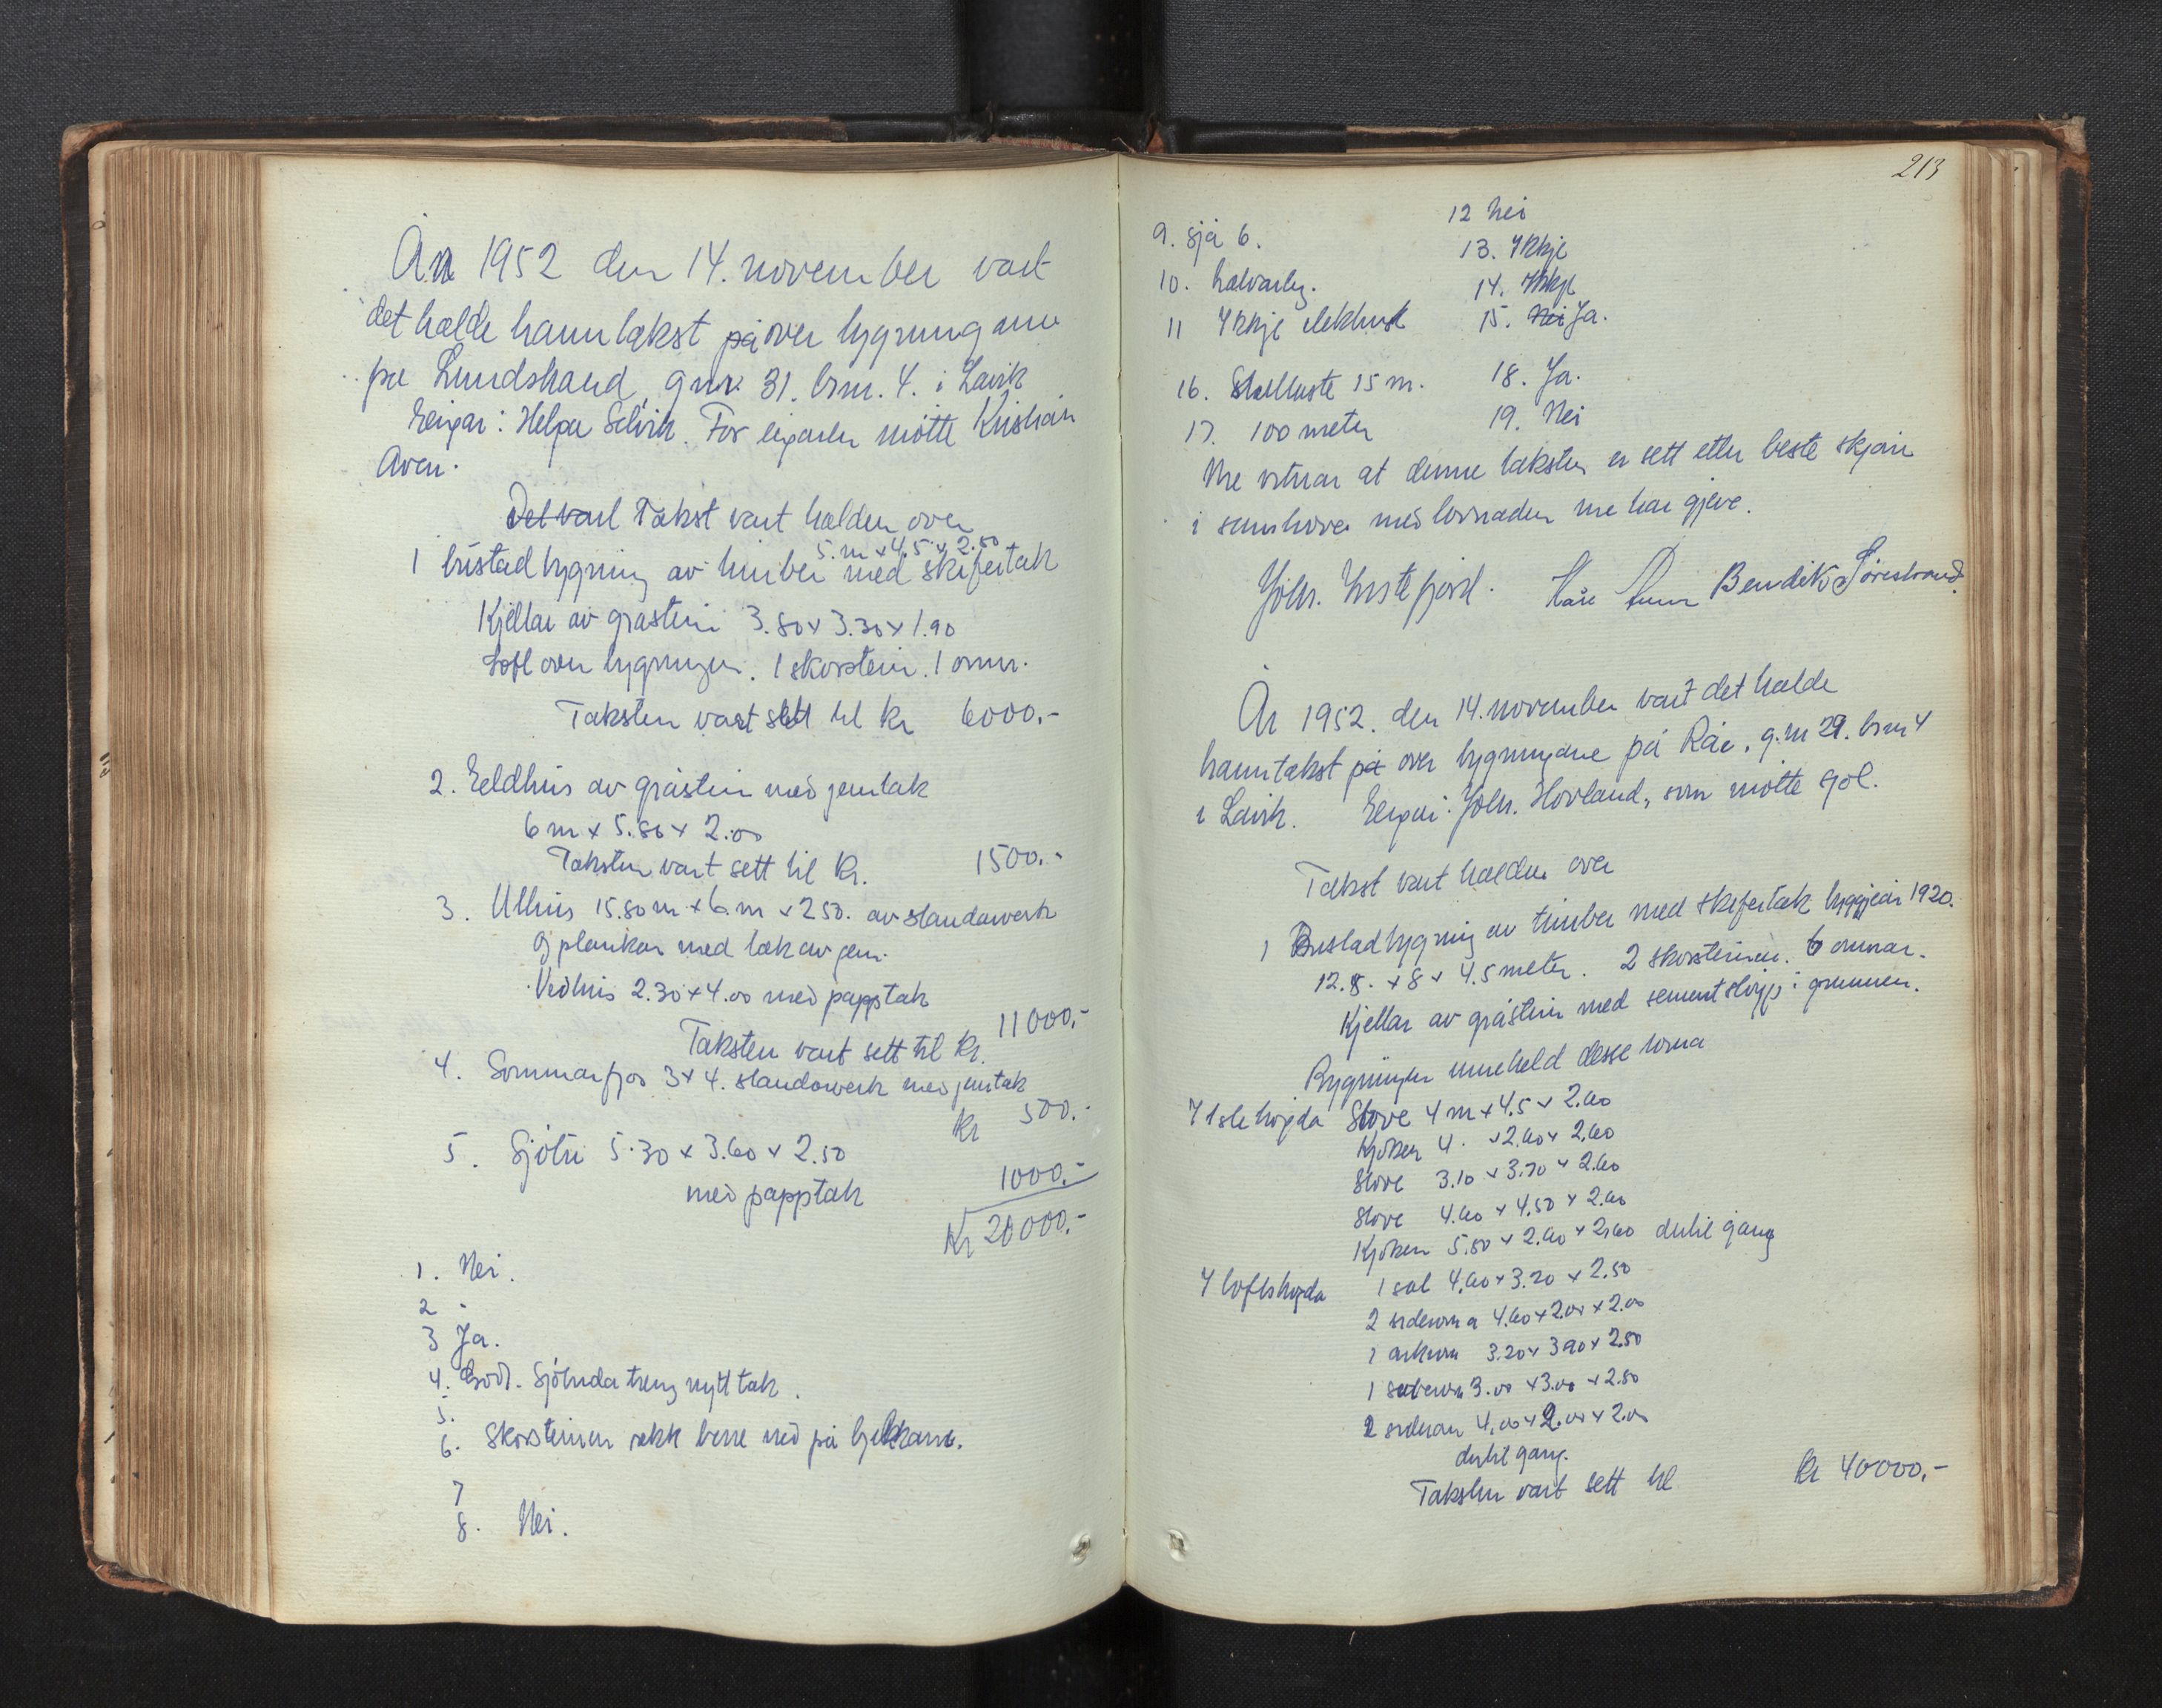 År 1952 den 14. november vart
det halde branntakst på over bygningane
på Lundstrand, gnr. 31. brnr. 4. i Lavik
Eigar: Helga Selvik. For eigaren møtte Kristian
Aven.
Det vart Takst vart halden over
5. m x 4.5 x 2.50
1 bustadbygning av timber med skifertak
Kjellar av gråstein 3.80 x 3.30 x 1.90
Loft over bygningen. 1 skorstein. 1 omn.
Taksten vart sett til kr 6000.-
2. Eeldhus av gråstein med jentak
6 m x 5.80 x 2.00
Taksten vart sett til kr. 1500.-
3. Uthus 15.80 m x 6. m x 250. av standarverk
og plankar med tak av jen.
Vedhus 2.30 x 4.00 med papptak
Taksten vart sett til kr. 11000.-
4. Sommarfjøs 3 x 4. standarverk med jentak
kr 500.-
5. Sjøbu 5.30 x 3.60 x 2.50
med papptak 1000.-
Kr 20000.-
1. Nei.
2 -
3 Ja.
4. God. Sjøbuda treng nytt tak.
5.
6. Skorsteinen rekk berre ned på bjelkane.
7
8. Nei.
213
9. sjå 6.
10. halvarleg.
11 Ikkje elektrisk
12 Nei
13. Ikkje
14. Ikkje
15. Nei Ja.
16. Stallluste 15 m.
17. 100 meter
18. Ja.
19. Nei
Me vitnar at denne taksten er sett etter beste skjøn
i samhøve med lovnaden me har gjeve.
Johs. Ystefjord. Kåre Bendik Sørestrand.
År 1952. den 14. november vart det halde
branntakst på over bygningane på Råe, g.nr 29. brnr 4
i Lavik. Eigar: Johs. Hovland, som møtte sjøl.
Takst vart halden over
1 Bustadbygning av timber med skifertak byggjeår 1920.
12.8. x 8 x 4.5 meter. 2 skorsteinar. 6 omnar.
Kjellar av gråstein med sementstøyp i grunnen.
Bygningen inneheld desse roma
I 1ste høgda Stove 4 m x 4.5 x 2.60
Kjøken 4. x 2.60 x 2.60
Stove 3.10 x 3.70 x 2.60
Stove 4.60 x 4.50 x 2.60
Kjøken 5.80 x 2.60 x 2.60 dertil gang
I loftshøgda 1 sal 4.60 x 3.20 x 2.50
2 siderom a 4.60 x 2.00 x 2.00
1 arkrom 3.20 x 3.90 x 2.50
1 soverom 3.00 x 3.00 x 2.50
2 siderom 4.00 x 2.00 x 2.00
dertil gang.
Taksten vart sett til kr 40000.-